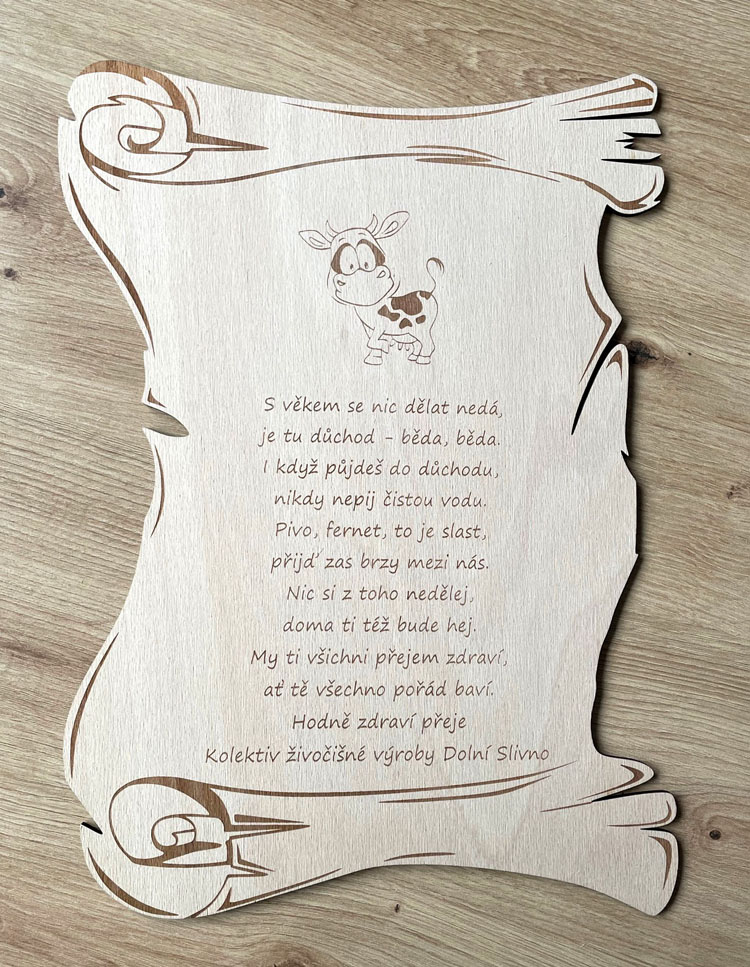 S věkem se nic dělat nedá,
je tu důchod - běda, běda.
I když půjdeš do důchodu,
nikdy nepij čistou vodu.
Pivo, fernet, to je slast,
přijď zas brzy mezi nás.
Nic si z toho nedělej,
doma ti též bude hej.
My ti všichni přejem zdraví,
ať tě všechno pořád baví.
Hodně zdraví přeje
Kolektiv živočišné výroby Dolní Slivno